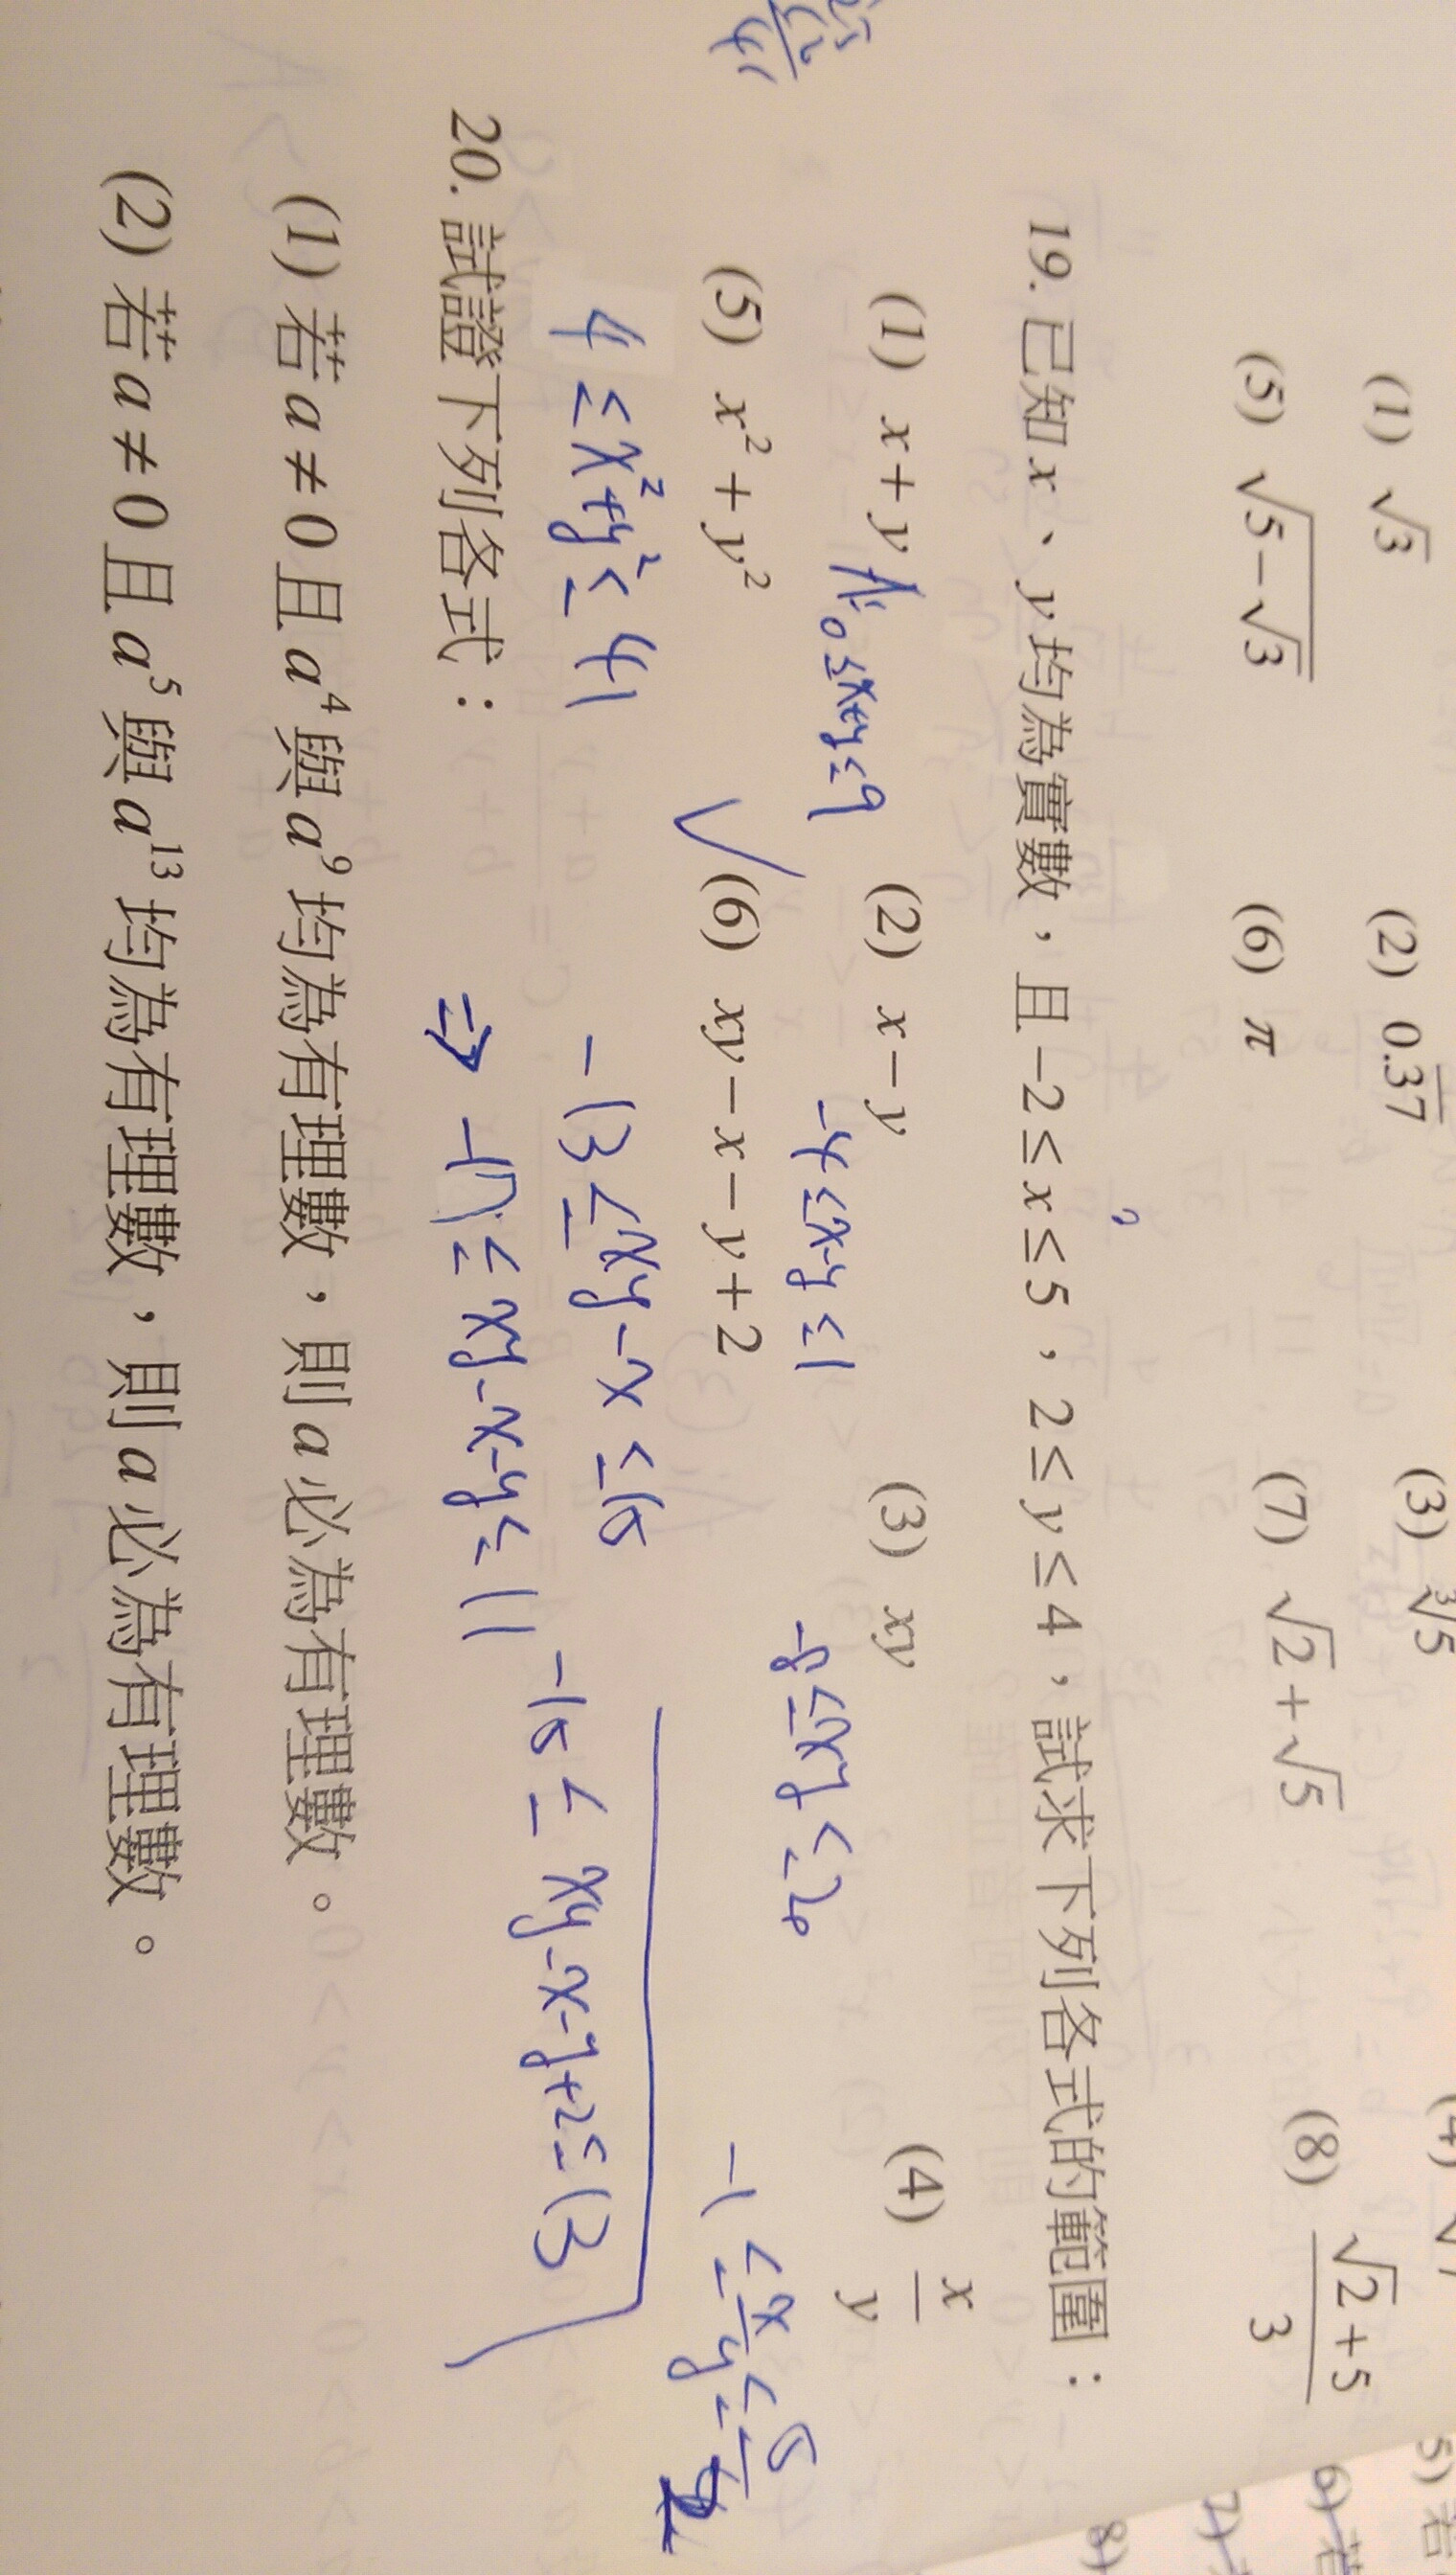 (1) √3 (2) 0.3̅7̅ (3) ∛5
(5) √(5-√3) (6) π (7) √2+√5 (8) (√2+5)/3
19. 已知 x、y 均為實數，且 -2≤x≤5，2≤y≤4，試求下列各式的範圍：
(1) x+y (2) x-y (3) xy (4) x/y
0≤x+y≤9 -4≤x-y≤1 -8≤xy≤20 -1≤x/y≤5/2
(5) x²+y² (6) xy-x-y+2
4≤x²+y²≤41 -13≤xy-x≤15
⇒ -17≤xy-x-y≤11 -15≤xy-x-y+2≤13
20. 試證下列各式：
(1) 若 a≠0 且 a⁴ 與 a⁹ 均為有理數，則 a 必為有理數。
(2) 若 a≠0 且 a⁵ 與 a¹³ 均為有理數，則 a 必為有理數。